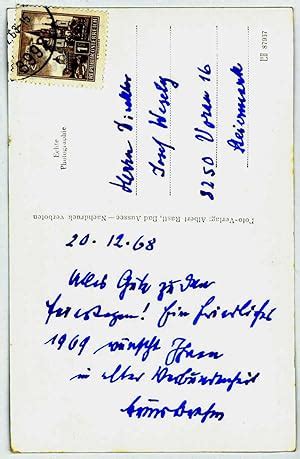 Herrn Direktor
Josef Wesely
8250 Vorau 16
Steiermark
PH 87937
Echte
Photographie
Foto-Verlag: Albert Rastl, Bad Aussee — Nachdruck verboten
REPUBLIK ÖSTERREICH
20. 12. 68
Alles Gute zu den
Feiertagen! Ein friedliches
1969 wünscht Ihnen
in alter Verbundenheit